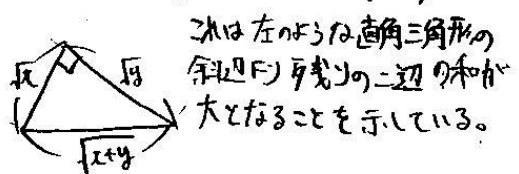 これは左のような直角三角形の
√x
√y
斜辺より残りの二辺の和が
大となることを示している。
√x+y